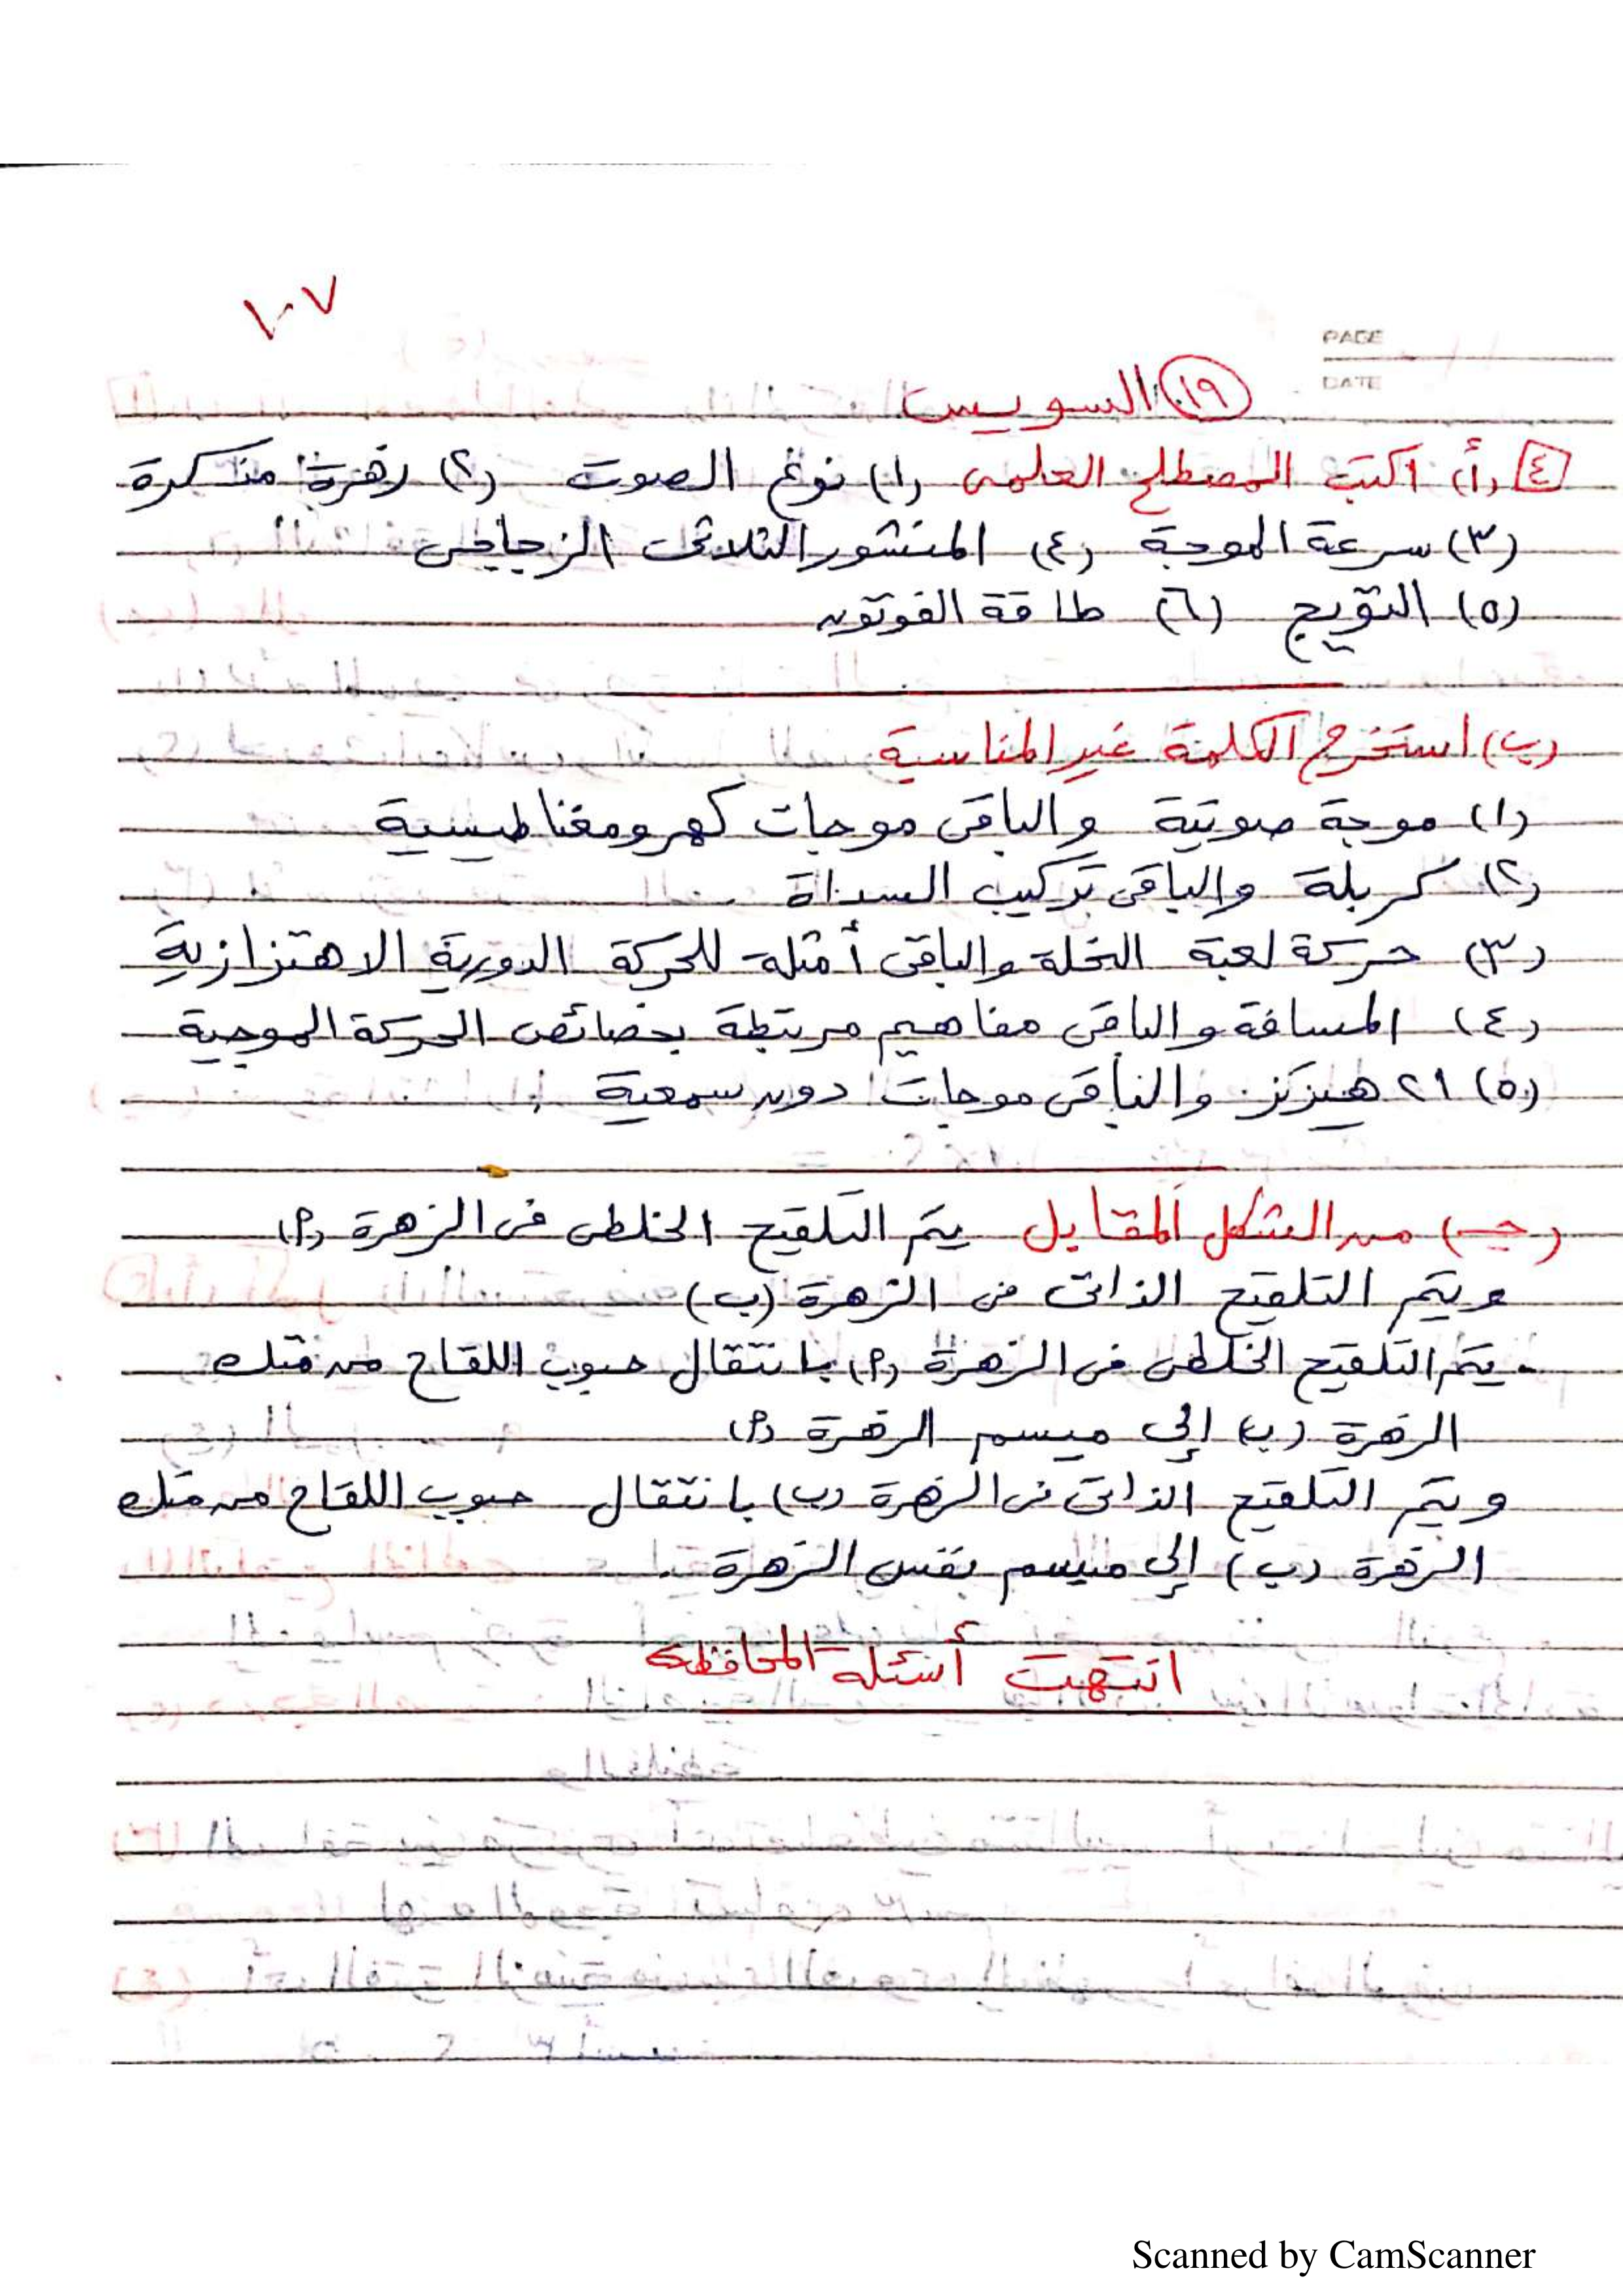 ١٠٧
PAGE
DATE
١٩ السويس
٤ (أ) اكتب المصطلح العلمى (١) نوع الصوت (٢) زهرة مذكرة
(٣) سرعة الموجة (٤) المنشور الثلاثى الزجاجى
(٥) التويج (٦) طاقة الفوتون
(ب) استخرج الكلمة غير المناسبة
(١) موجة صوتية والباقى موجات كهرومغناطيسية
(٢) كربلة والباقى تركيب السداة
(٣) حركة لعبة النحلة والباقى أمثلة للحركة الدورية الاهتزازية
(٤) المسافة والباقى مفاهيم مرتبطة بخصائص الحركة الموجية
(٥) ٢١ هيرتز والباقى موجات دون سمعية
(جـ) من الشكل المقابل يتم التلقيح الخلطى فى الزهرة (٩)
ويتم التلقيح الذاتى فى الزهرة (ب)
- يتم التلقيح الخلطى فى الزهرة (٩) بانتقال حبوب اللقاح من متك
الزهرة (ب) إلى ميسم الزهرة (٩)
ويتم التلقيح الذاتى فى الزهرة (ب) بانتقال حبوب اللقاح من متك
الزهرة (ب) إلى ميسم نفس الزهرة .
انتهت أسئلة المحافظة
Scanned by CamScanner